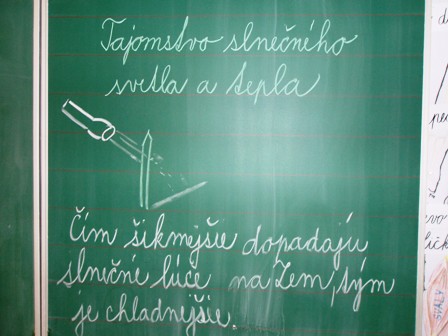 Tajomstvo slnečného
svetla a tepla
Čím šikmejšie dopadajú
slnečné lúče na Zem, tým
je chladnejšie.